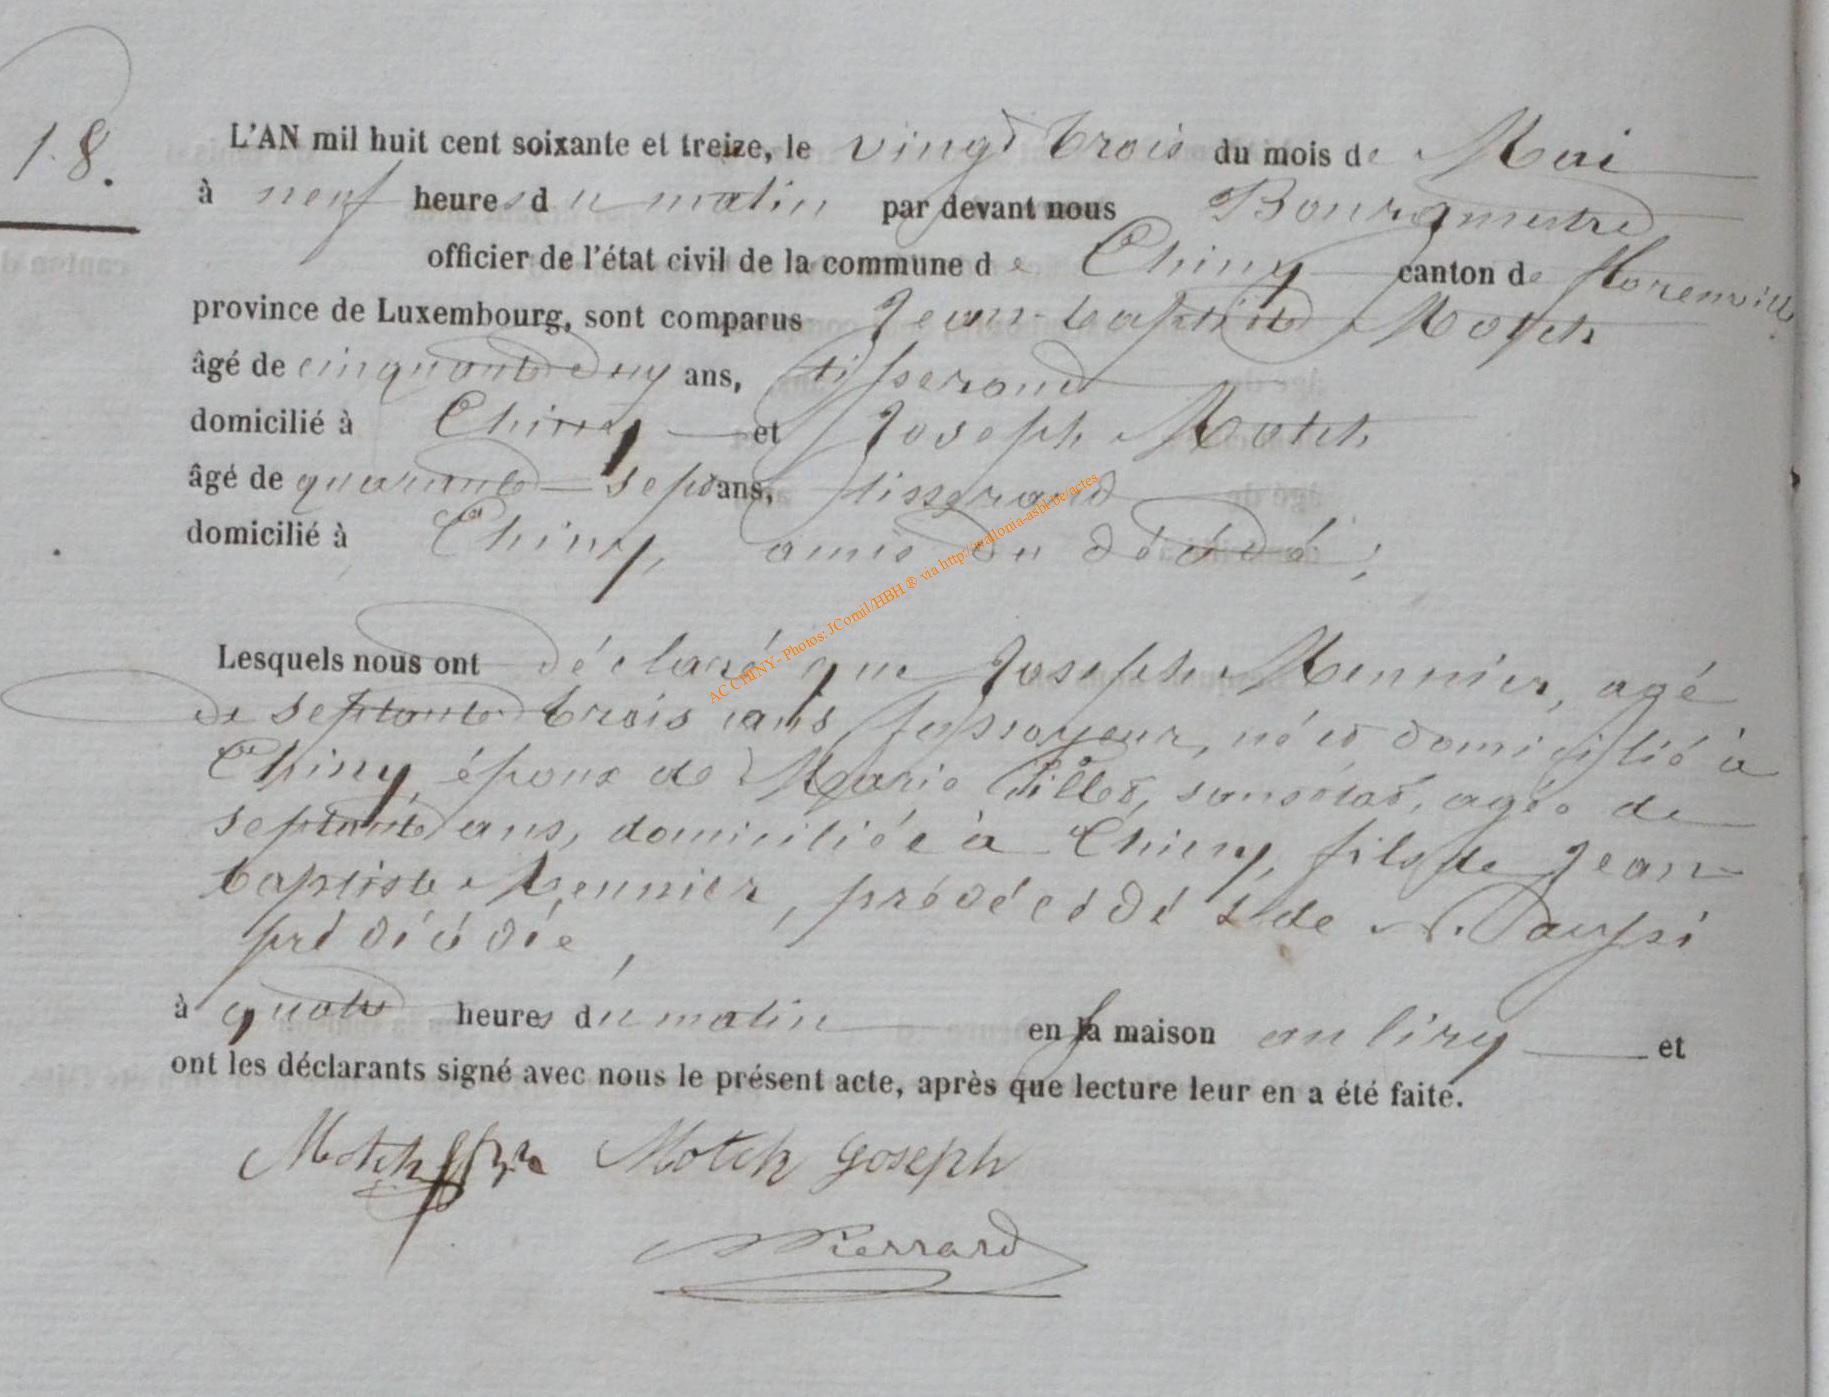 18.
L'AN mil huit cent soixante et treize, le vingt trois du mois de Mai
à neuf heures du matin par devant nous Bourgmestre
officier de l'état civil de la commune de Chiny canton de Florenville
province de Luxembourg, sont comparus Jean-baptiste Motch
âgé de cinquante deux ans, tisserand
domicilié à Chiny et Joseph Motch
âgé de quarante-sept ans, tisserand
domicilié à Chiny, amis du décédé;
Lesquels nous ont déclaré que Joseph Meunier, agé
de septante trois ans fossoyeur, né et domicilié à
Chiny, époux de Marie Gillet, sans état, agée de
septante ans, domiciliée à Chiny, fils de Jean-
baptiste Meunier, prédécédé & de N. Jaussi
prédécédée,
à quatre heures du matin en sa maison au liry et
ont les déclarants signé avec nous le présent acte, après que lecture leur en a été faite.
Motch Motch Joseph
Pierrard
AC CHINY - Photos: JComil/HBH ® via http://wallonia-asbl.be/actes